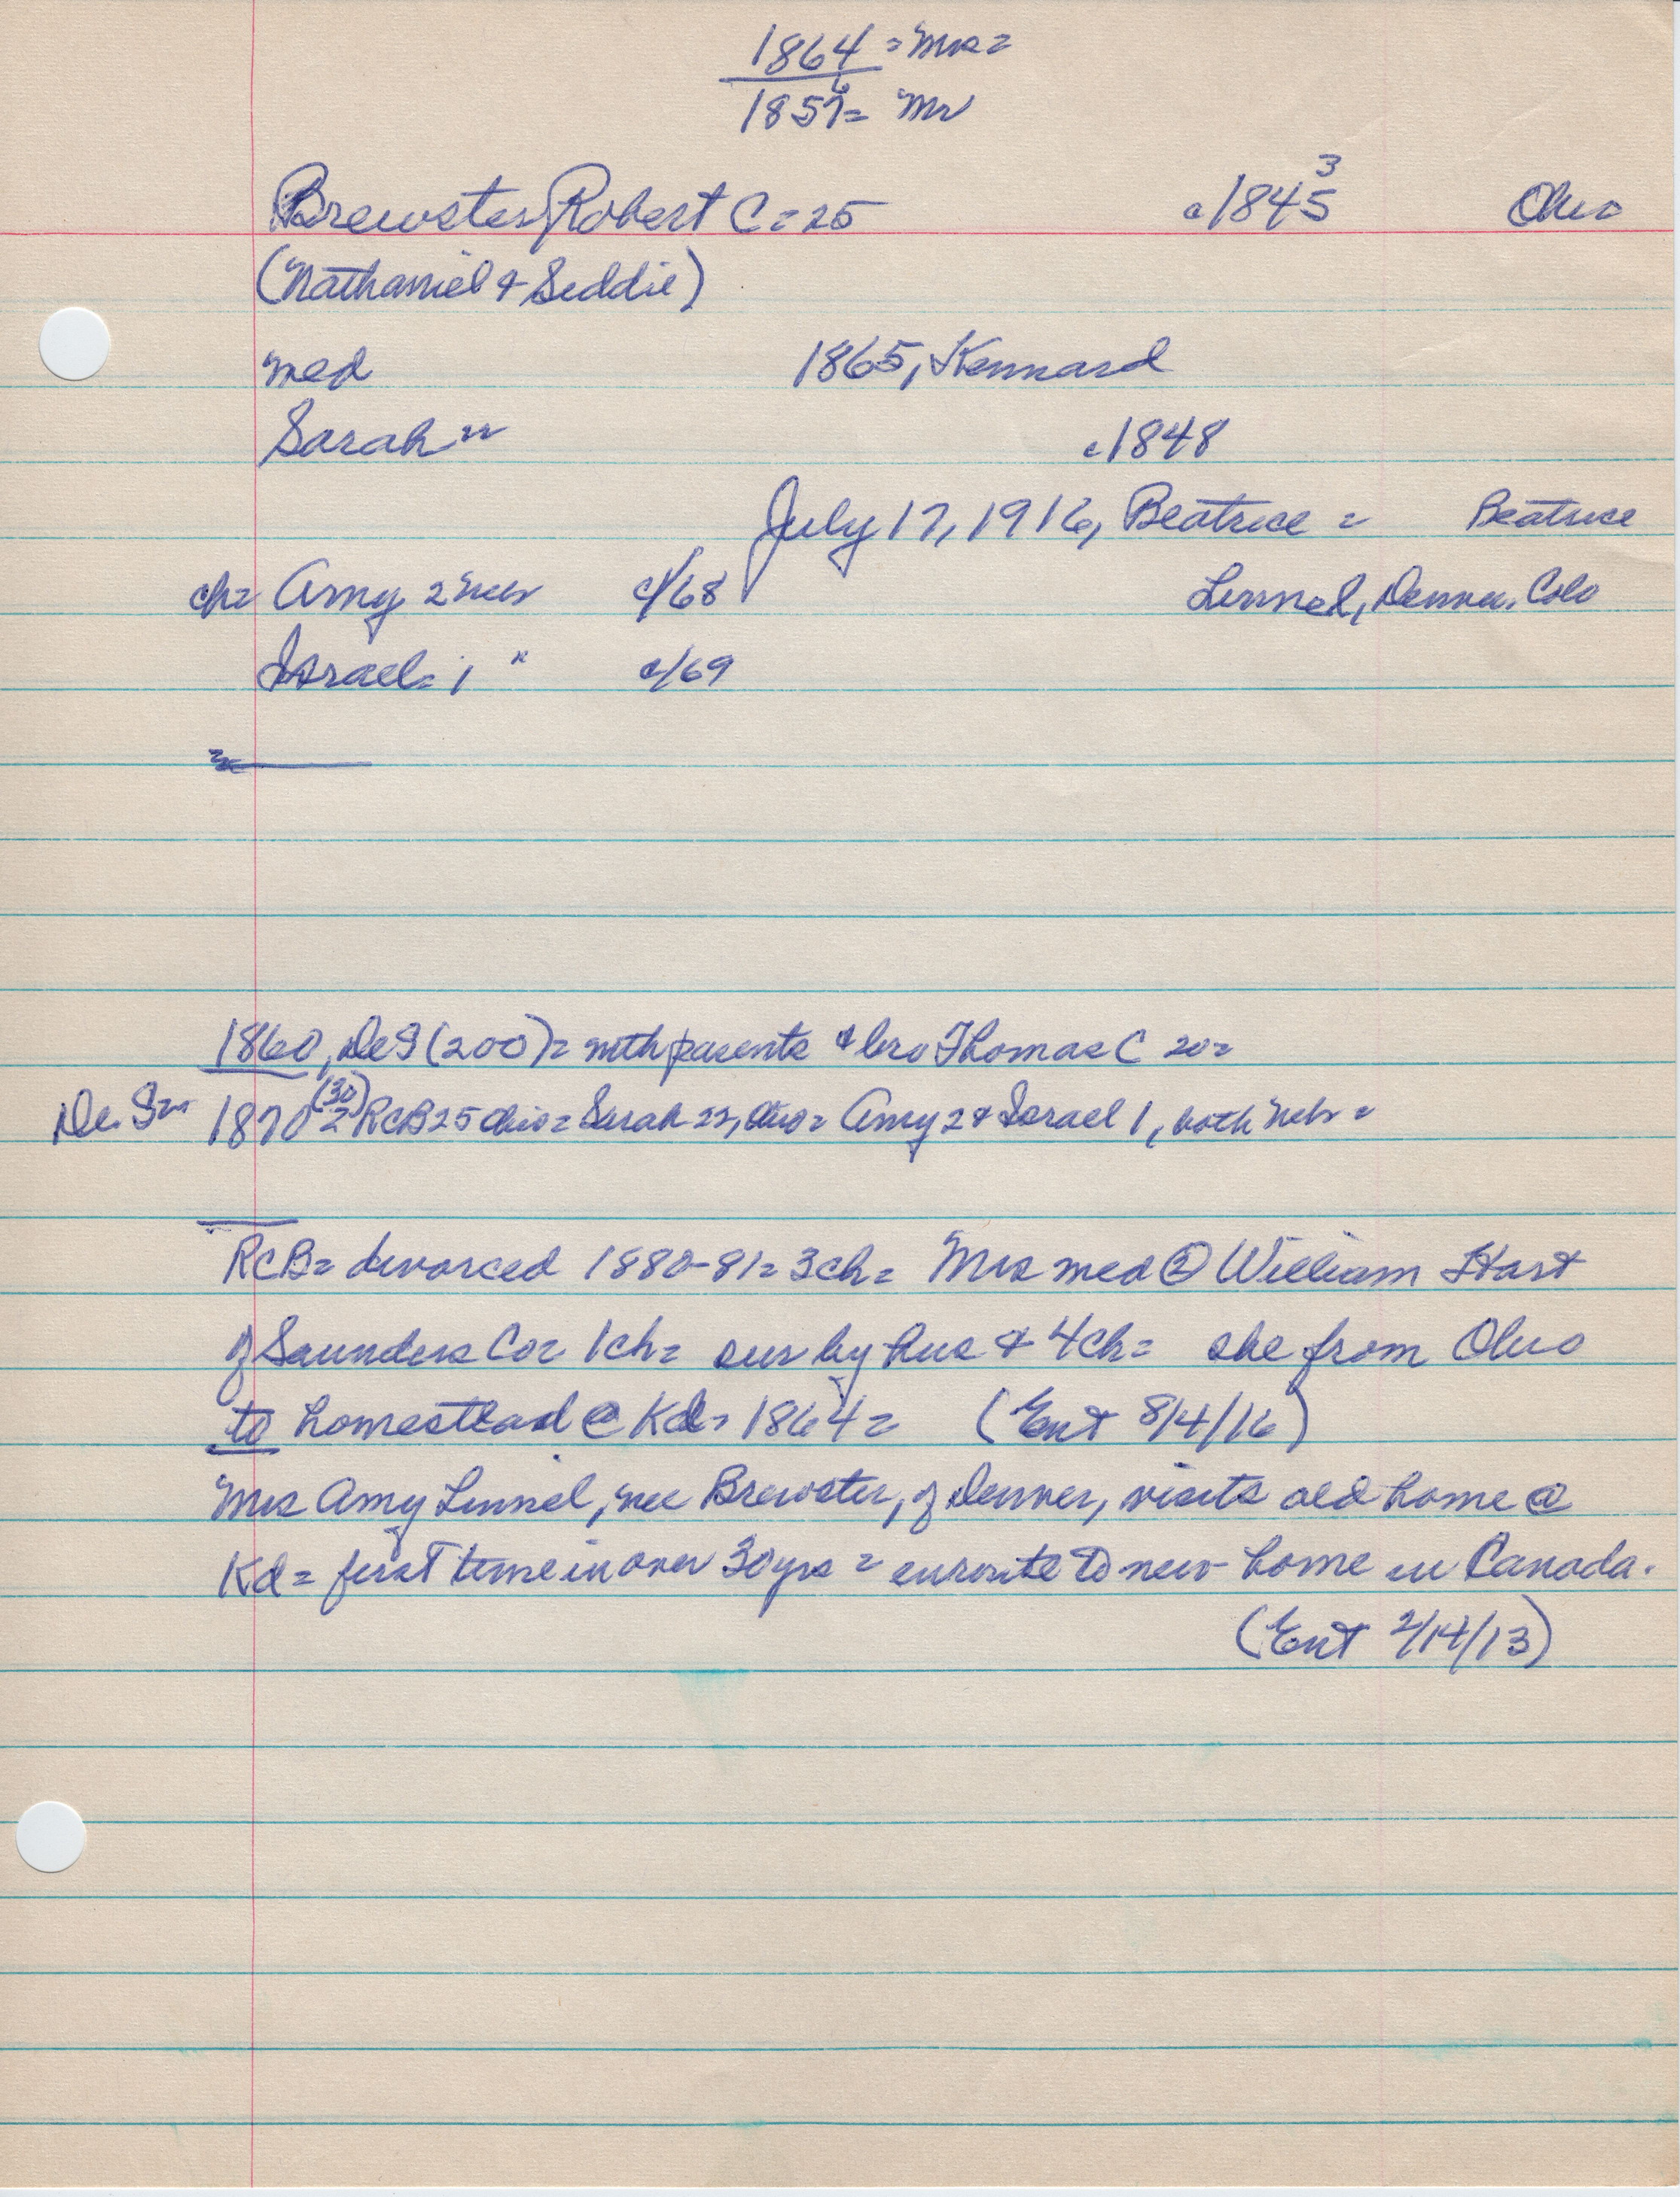 1864 = Mrs =
6
1857 = Mr
3
Brewster, Robert C = 25 c1845 Ohio
(Nathaniel & Seddie)
med 1865, Kennard
Sarah " c1848
July 17, 1916, Beatrice = Beatrice
ch = Amy 2 Neb c/68 Linnel, Denver, Colo
Israel = 1 " c/69
1860, DeS (200) = with parents & bro Thomas C 20 =
(30)
De.S 1870 2 RCB 25 Ohio = Sarah 22, Ohio = Amy 2 & Israel 1, both Neb =
RCB = divorced 1880-81 = 3ch = Mrs med ② William Hart
of Saunders Co = 1ch = sur by hus & 4ch = she from Ohio
to homestead @ Kd = 1864 = (Ent 8/4/16)
Mrs Amy Linnel, nee Brewster, of Denver, visits old home @
Kd = first time in over 30 yrs = enroute to new home in Canada.
(Ent 2/14/13)